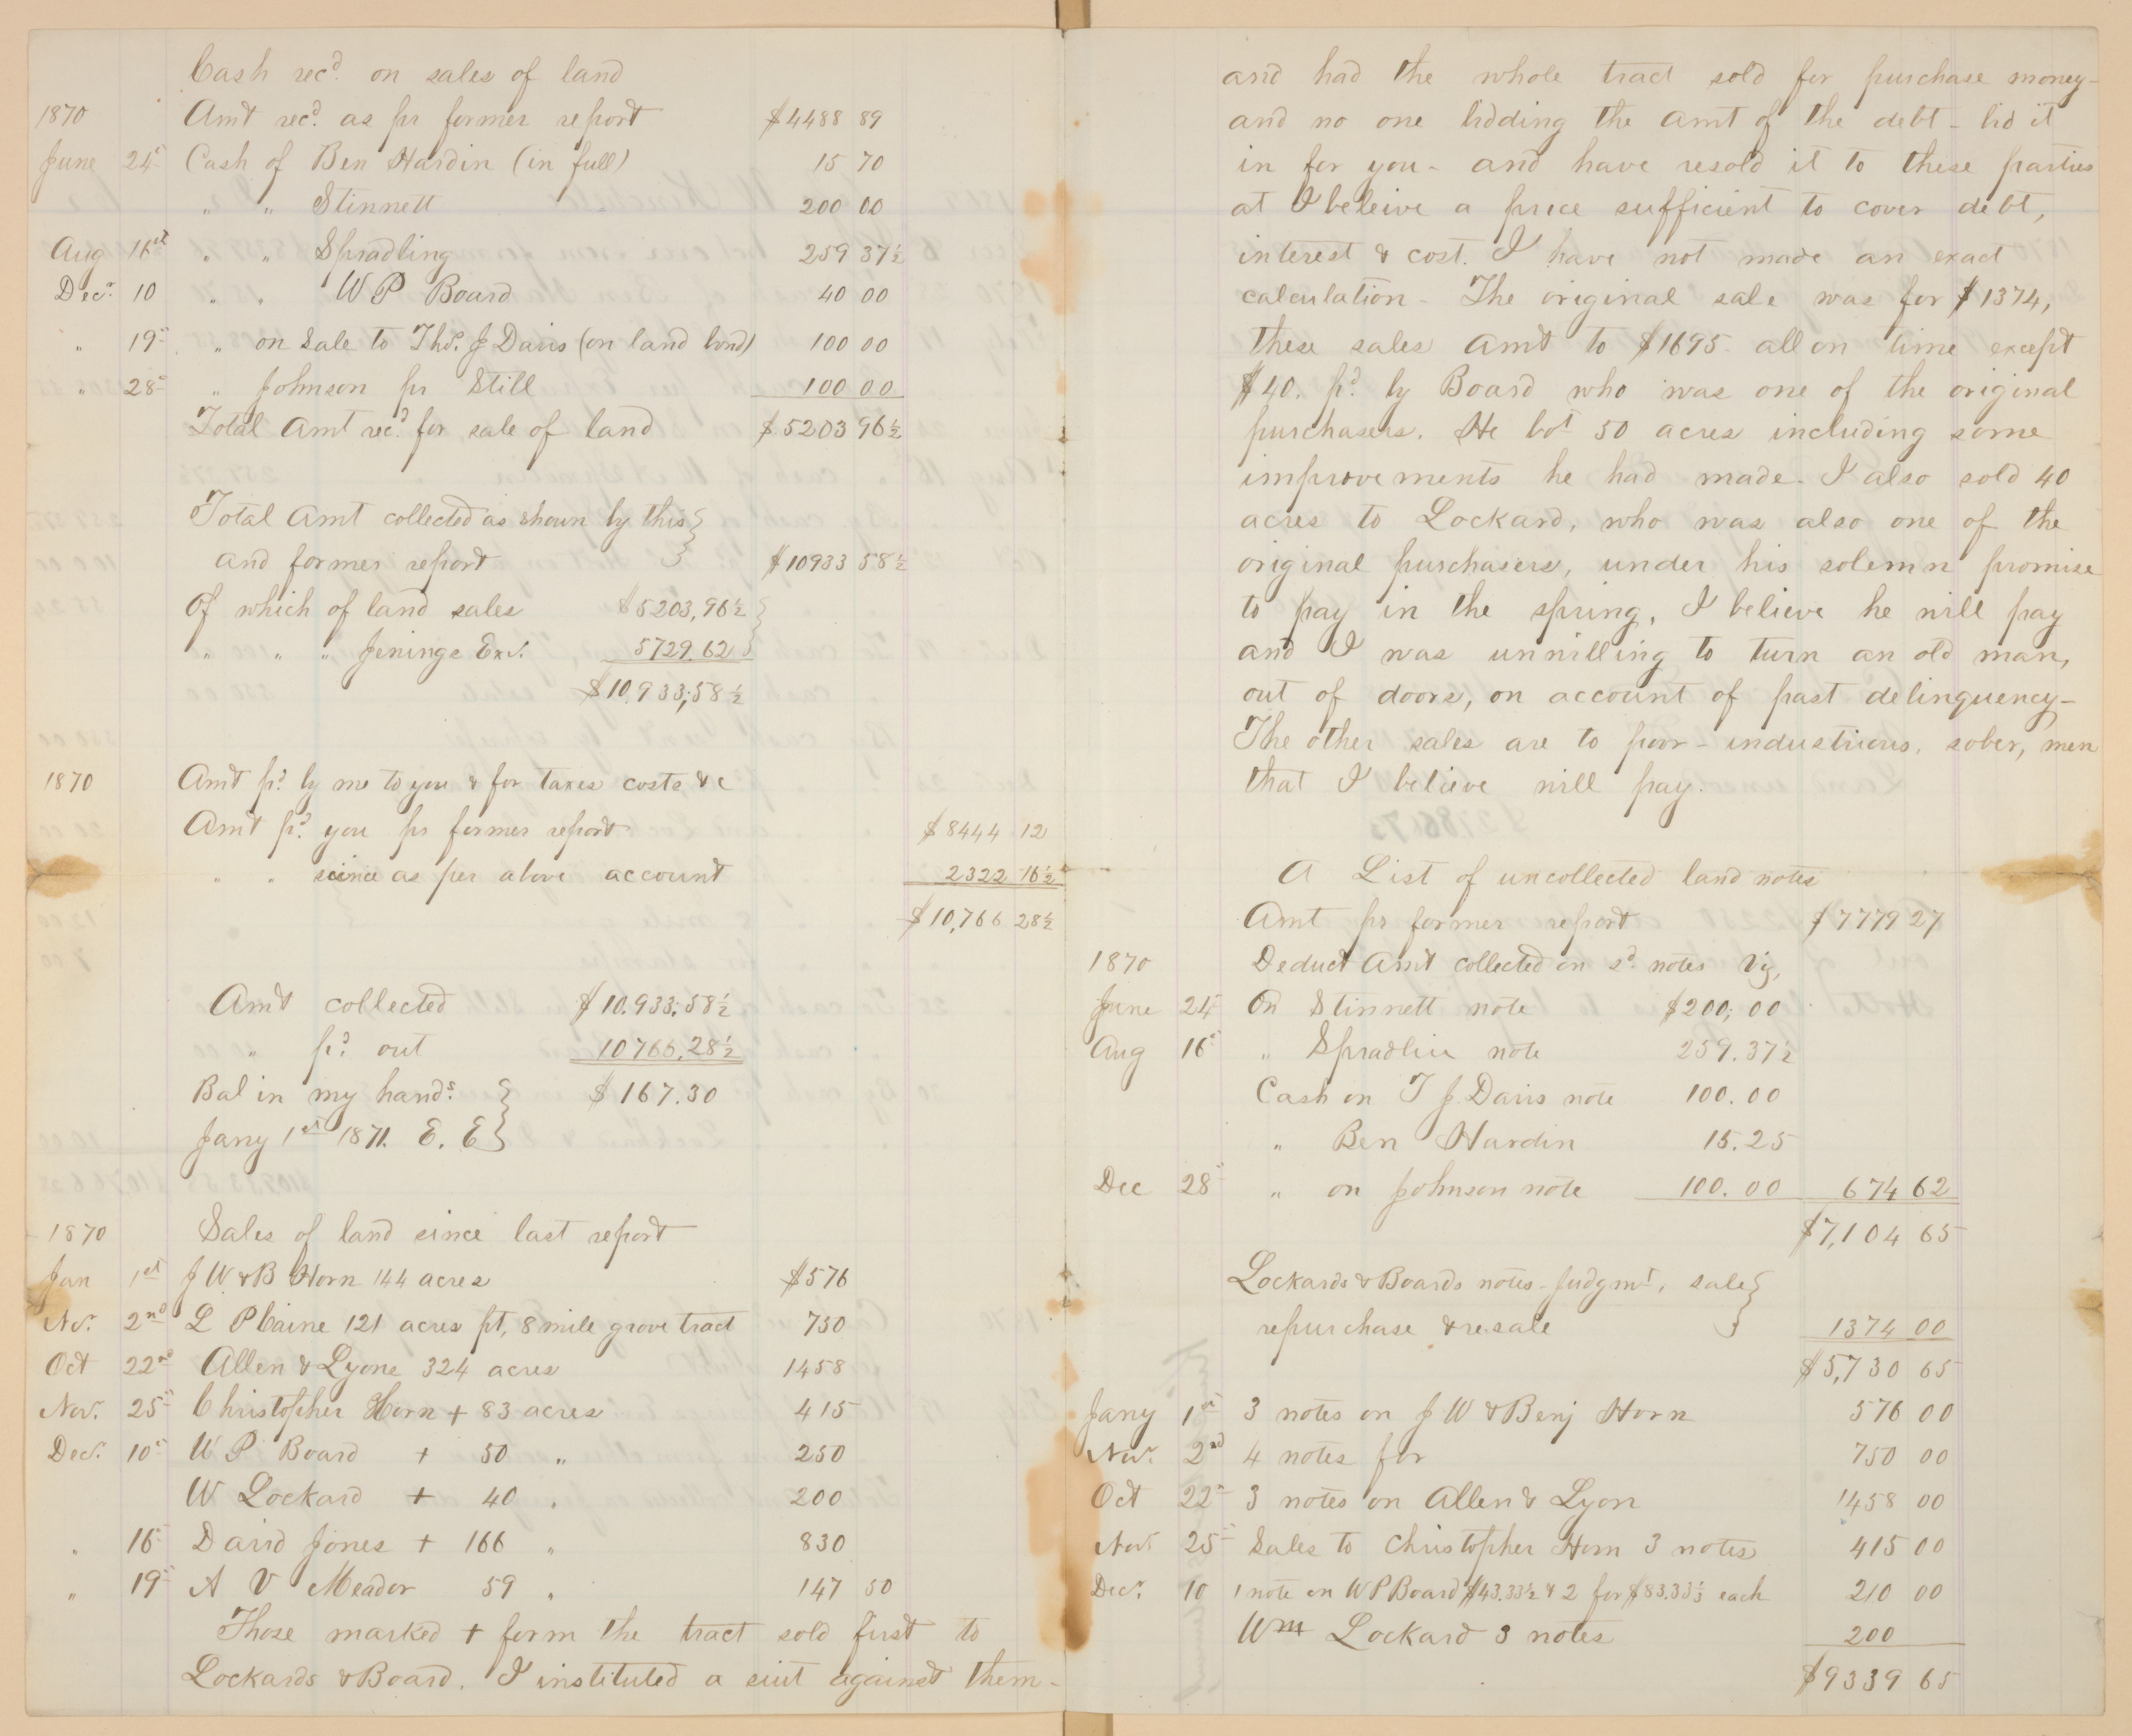 Cash recd. on sales of land
1870 Amt recd. as pr former report $4488 89
June 24" Cash of Ben Hardin (in full) 15 70
" " Stinnett 200 00
Aug 16st " " Spradling 259 37½
Decr. 10 " " W P Board 40 00
" 19" " on Sale to Thos. J Davis (on land bond) 100 00
" 28" " Johnson pr Still 100 00
Total Amt recd. for sale of land $5203 96½
Total Amt collected as shown by this }
and former report } $10933 58½
Of which of land sales $5203,96½ }
" " " Jenings Exr. 5729.62 }
$10,933,58½
1870 Amt pd. by me to you & for taxes costs &c
Amt pd. you pr former report $8444 12
" " since as per above account 2322 16½
$10,766 28½
Amt collected $10.933,58½
" pd. out 10766,28½
Bal in my hands. } $167.30
Jany 1st 1871. E. E }
1870 Sales of land since last report
Jan 1st J W & B Horn 144 acres $576
Nov. 2nd L P Caine 121 acres pt, 8 mile grove tract 750
Oct 22nd Allen & Lyons 324 acres 1458
Nov. 25" Christopher Horn + 83 acres 415
Dec. 10" W P Board + 50 " 250
W Lockard + 40 " 200
" 16" David Jones + 166 " 830
" 19" A V Meador 59 " 147 50
Those marked + form the tract sold first to
Lockards & Board. I instituted a suit against them -
and had the whole tract sold for purchase money -
and no one bidding the amt of the debt - bid it
in for you - and have resold it to these parties
at I beleive a price sufficient to cover debt,
interest & cost. I have not made an exact
calculation - The original sale was for $1374,
these sales amt to $1695 all on time except
$40. pd. by Board who was one of the original
purchasers. He bot 50 acres including some
improvements he had made. I also sold 40
acres to Lockard, who was also one of the
original purchasers, under his solemn promise
to pay in the spring, I believe he will pay
and I was unwilling to turn an old man,
out of doors, on account of past delinquency -
The other sales are to poor - industrious, sober, men
that I believe will pay.
A List of uncollected land notes
Amt pr former report $7779 27
1870 Deduct Amt collected on sd. notes Viz,
June 24" On Stinnett note $200,00
Aug 16" " Spradlin note 259.37½
Cash on T J Davis note 100.00
" Ben Hardin 15.25
Dec 28" " on Johnson note 100.00 674 62
$7,104 65
Lockards & Boards notes - Judgmt, sale }
repurchase & resale } 1374 00
$5,730 65
Jany 1st 3 notes on J W & Benj Horn 576 00
Nov. 2nd 4 notes for 750 00
Oct 22" 3 notes on Allen & Lyon 1458 00
Nov 25" Sales to Christopher Horn 3 notes 415 00
Decr. 10 1 note on W P Board $43.33½ & 2 for $83.33⅓ each 210 00
Wm Lockard 3 notes 200
$9339 65